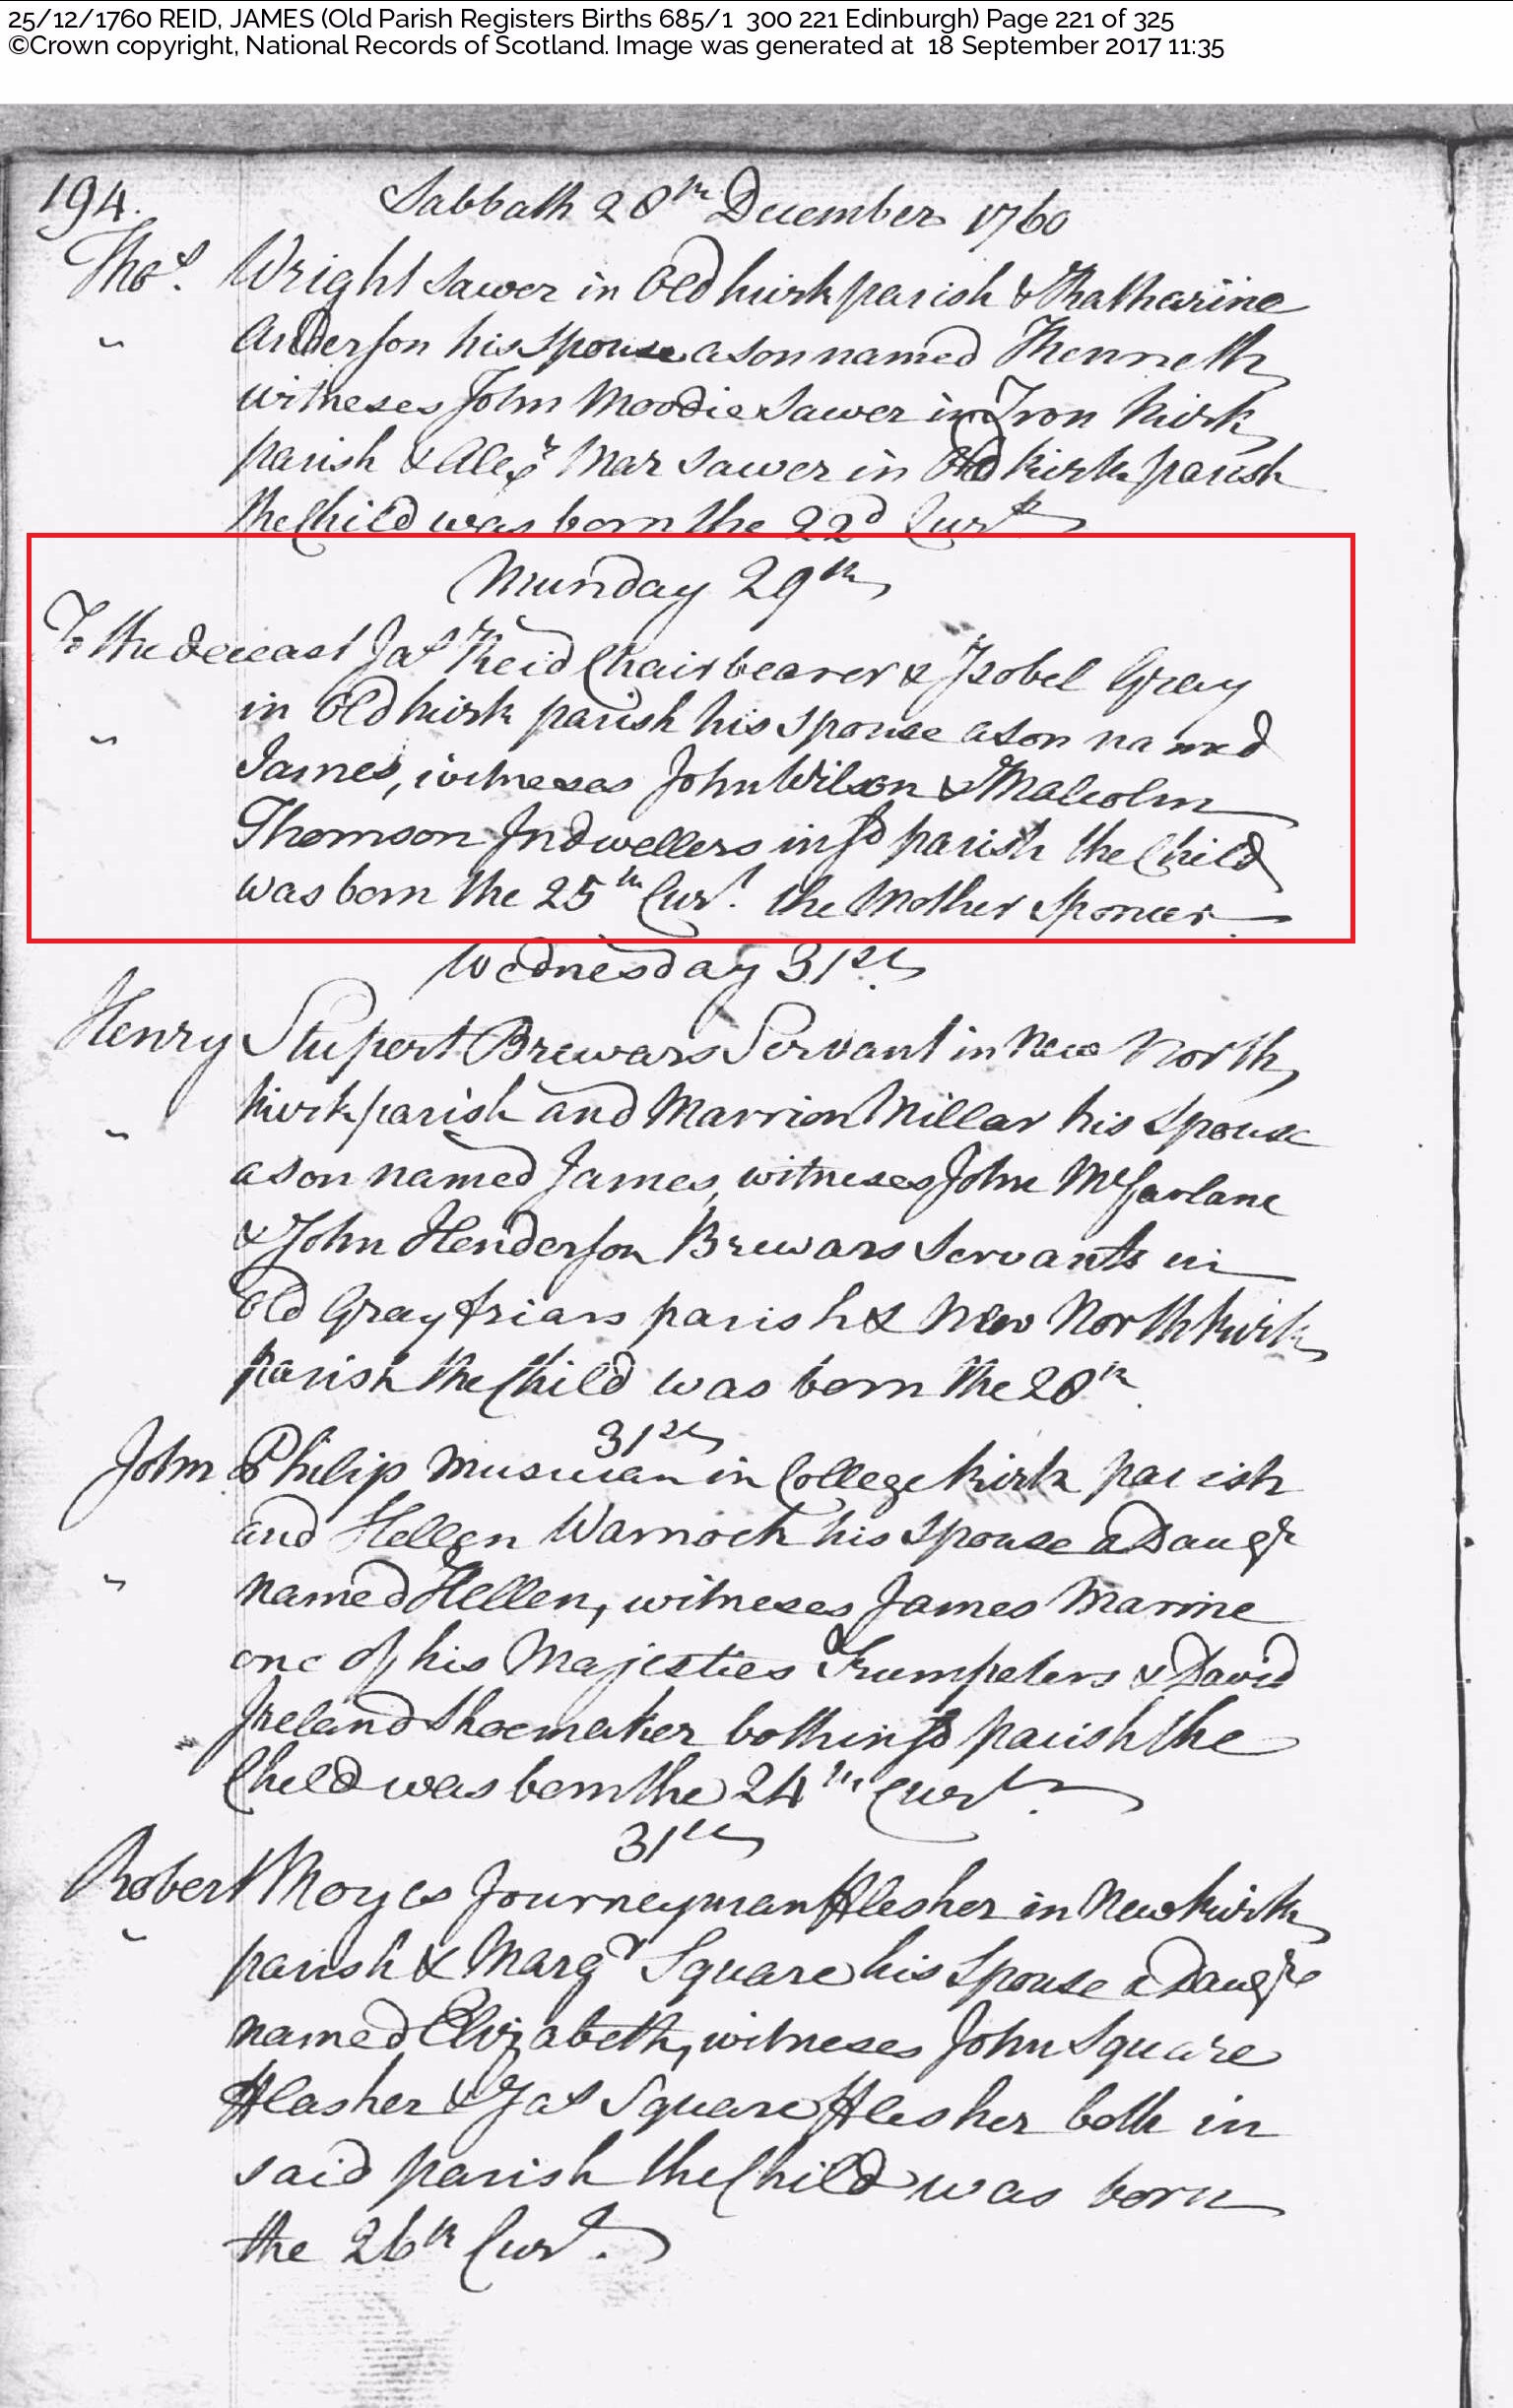 25/12/1760 REID, JAMES (Old Parish Registers Births 685/1 300 221 Edinburgh) Page 221 of 325
©Crown copyright, National Records of Scotland. Image was generated at 18 September 2017 11:35
194.
Sabbath 28th December 1760
Thos. Wright Sawer in Old kirk parish & Khatharine
Anderson his spouse a son named Khenneth
witneses John Moodie Sawer in Tron Kirk
parish & Alexr Mar Sawer in Old kirk parish
the Child was born the 22d Curt
Munday 29th
To the deceast Jas Reid Chairbearer & Isobel Gray
in Old kirk parish his spouse a son named
James, witneses John Wilson & Malcolm
Thomson Indwellers in sd parish the Child
was born the 25th Curt. the Mother Sponcer
Wednesday 31st
Henry Stupert Brewars Servant in New North
kirk parish and Marrion Millar his spouse
a son named James, witneses John McFarlane
& John Henderson Brewars Servants in
Old Grayfriars parish & New North kirk
parish the Child was born the 28th
31st
John Philip Musician in College Kirk parish
and Hellen Warnock his spouse a Daugr
named Hellen, witneses James Marine
one of his Majesties Trumpeters & David
Ireland Shoemaker both in sd parish the
Child was born the 24th Curt.
31st
Robert Moyes Journeyman Flesher in New kirk
parish & Margt Square his spouse a Daugr
named Elizabeth, witneses John Square
Flasher & Jas Square Flesher both in
said parish the Child was born
the 26th Curt.